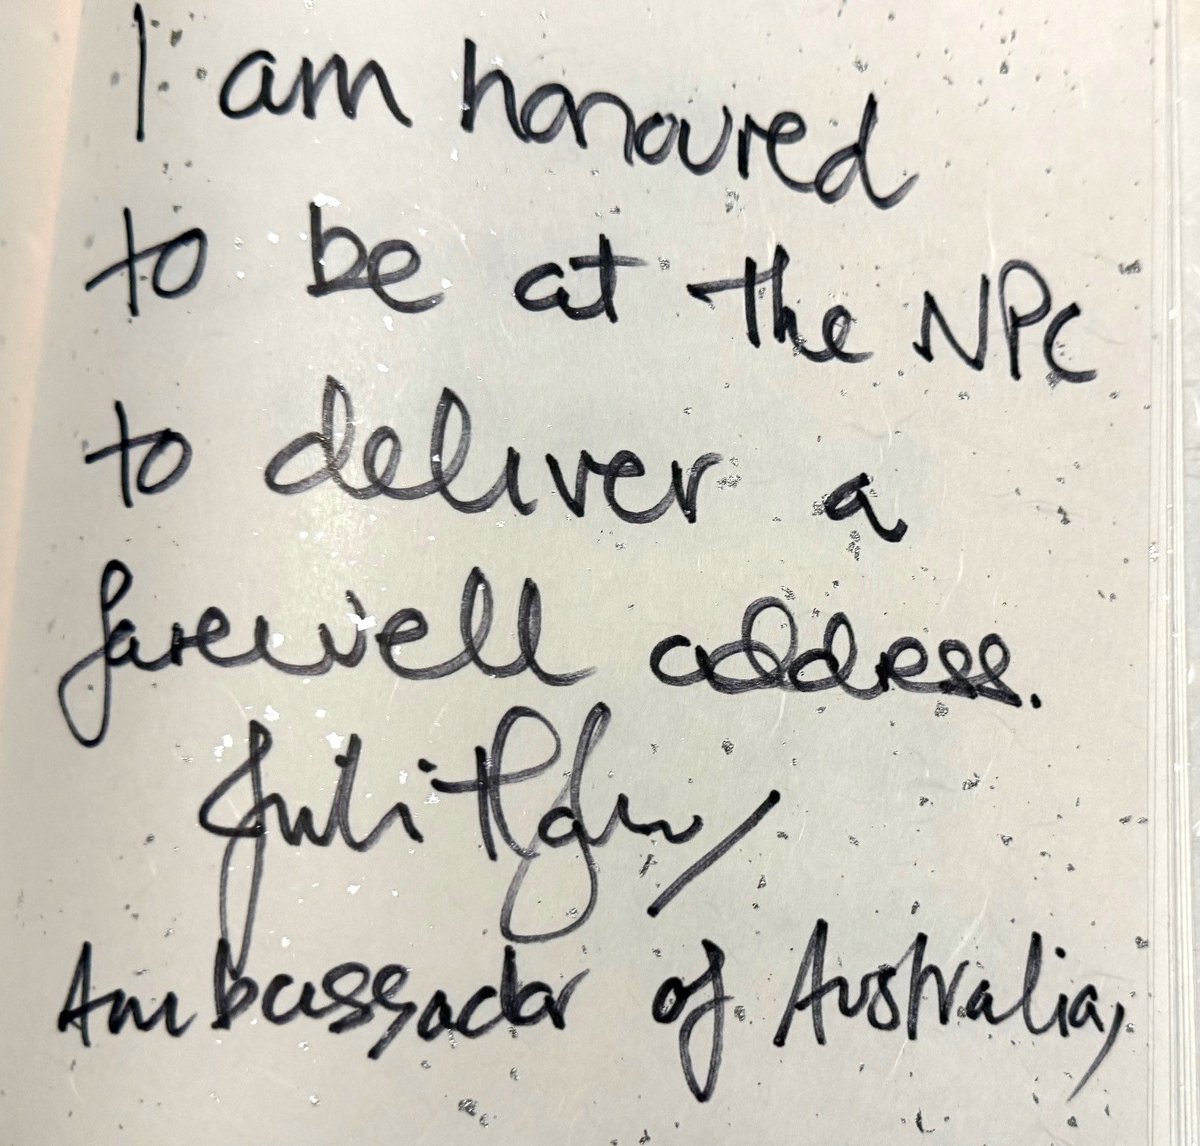 I am honoured
to be at the NPC
to deliver a
farewell address.
Ambassador of Australia,